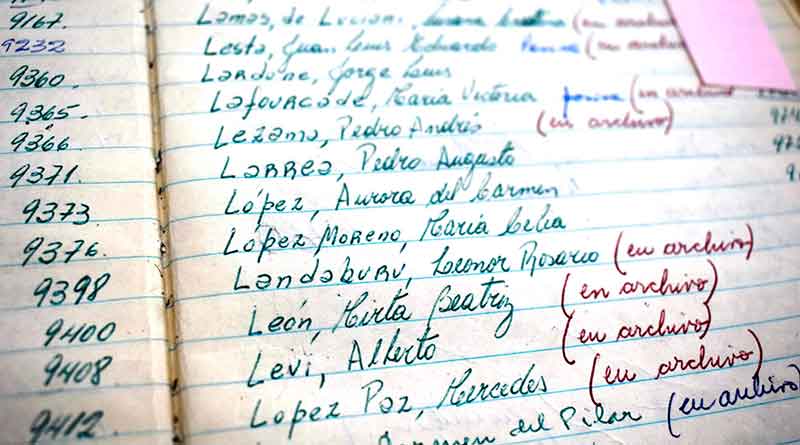 9167. Lamas, de Luciani, (en archivo
9232 Lesta, Juan Luis Eduardo (en archivo
9360. Lardone, Jorge Luis
9365. Lafourcade, María Victoria (en archivo)
9366. Lezama, Pedro Andrés (en archivo)
9371. Larrea, Pedro Augusto
9373 López, Aurora del Carmen
9376. López Moreno, María Celia
9398 Landaburu, Leonor Rosario (en archivo)
9400 León, Mirta Beatriz (en archivo)
9408 Levi, Alberto (en archivo)
9412 Lopez Paz, Mercedes (en archivo)
del Pilar (en archivo)